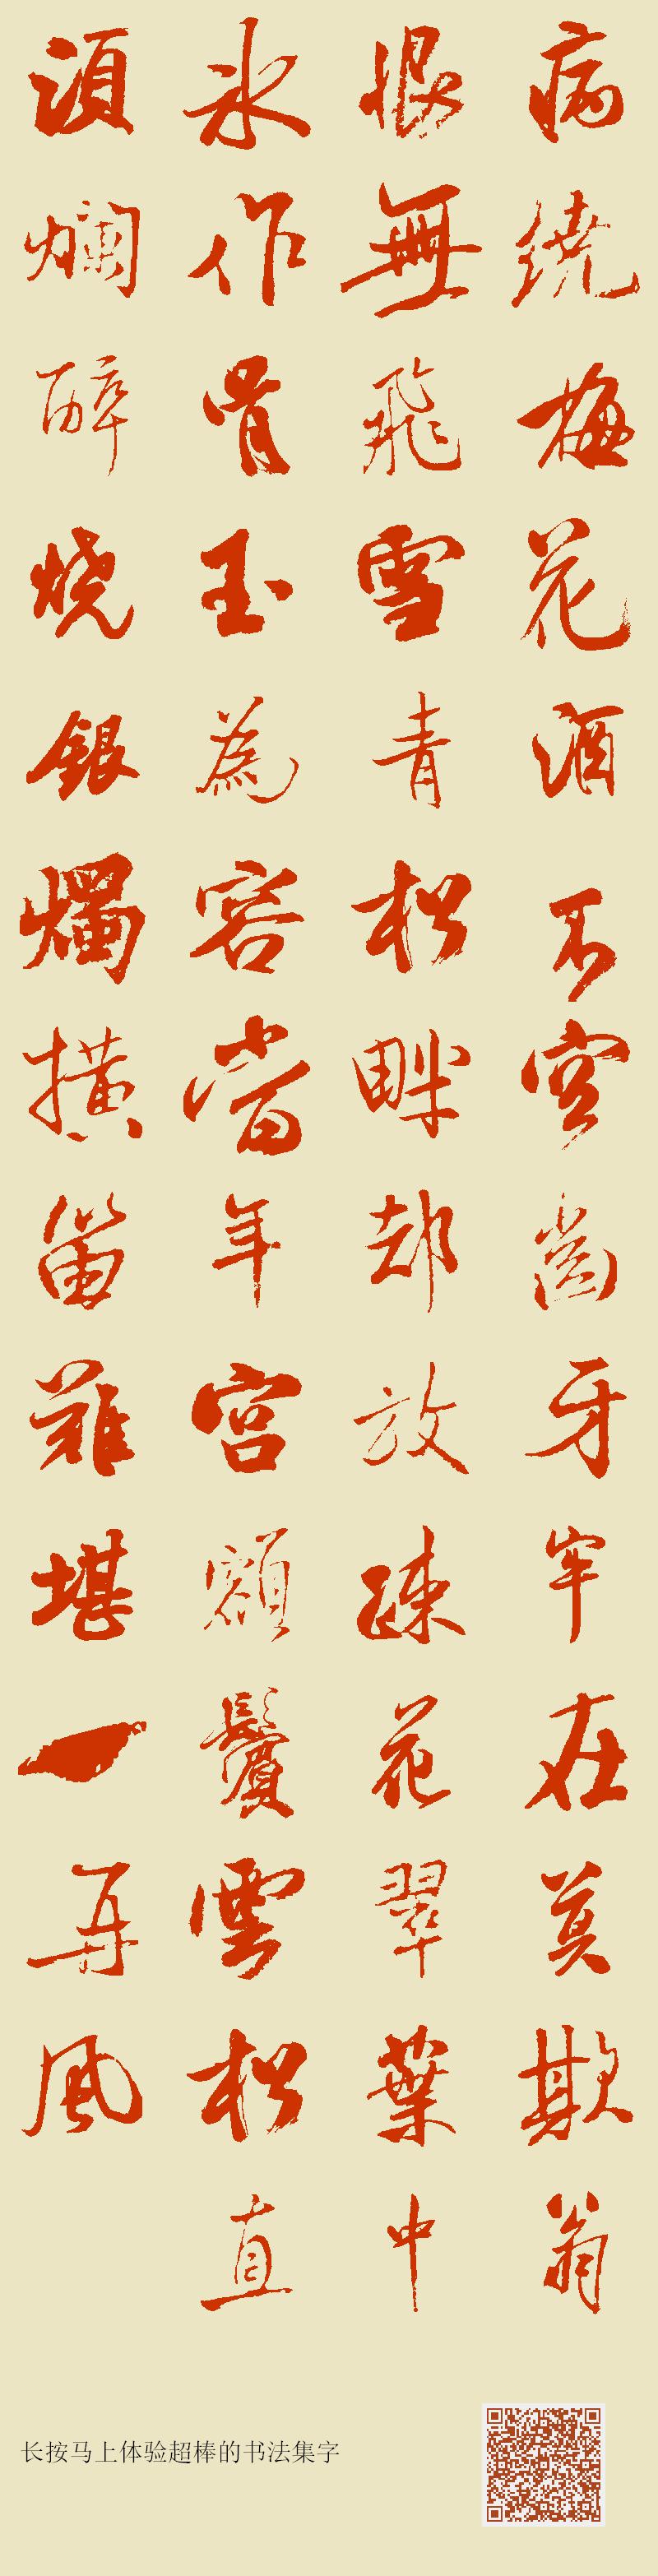 病繞梅花酒不空齒牙牢在莫欺翁
恨無飛雪青松畔却放疎花翠葉中
氷作骨玉為容當年宮額鬢雲松直
須爛醉燒銀燭橫笛難堪一再風
长按马上体验超棒的书法集字